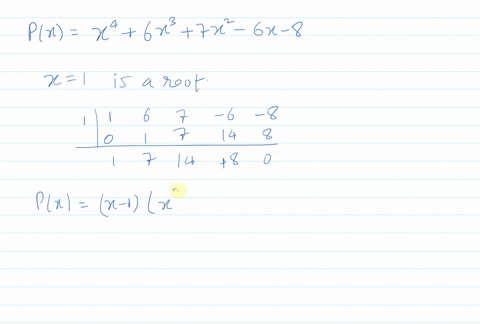 P(x) = x⁴ + 6x³ + 7x² - 6x - 8
x = 1 is a root.
1 | 1 6 7 -6 -8
0 1 7 14 8
1 7 14 +8 0
P(x) = (x-1) (x